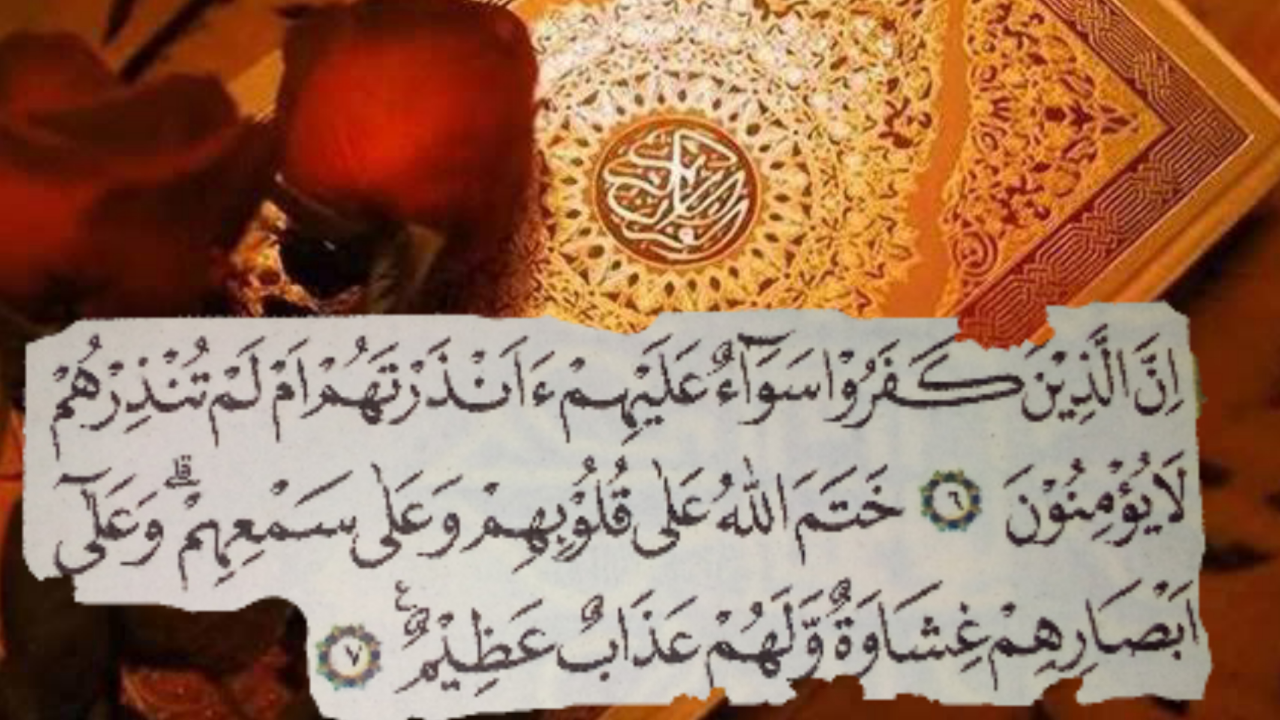 القرآن الكريم
اِنَّ الَّذِيْنَ كَفَرُوْا سَوَآءٌ عَلَيْهِمْ ءَاَنْذَرْتَهُمْ اَمْ لَمْ تُنْذِرْهُمْ
لَا يُؤْمِنُوْنَ ٦ خَتَمَ اللّٰهُ عَلٰى قُلُوْبِهِمْ وَعَلٰى سَمْعِهِمْ ۗ وَعَلٰٓى
اَبْصَارِهِمْ غِشَاوَةٌ وَّلَهُمْ عَذَابٌ عَظِيْمٌ ࣖ ٧